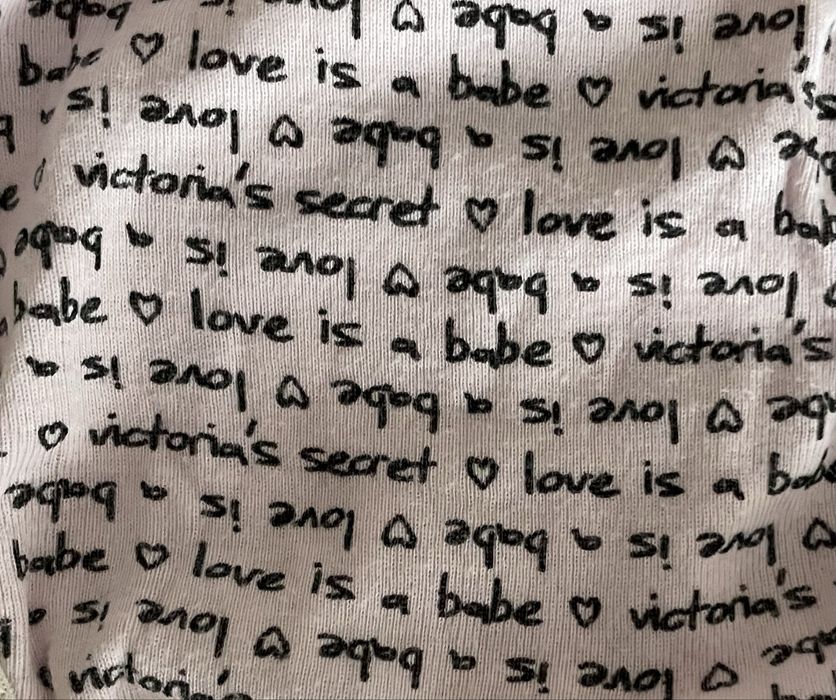 babe is love ♡ babe a is love
babe ♡ love is a babe ♡ victoria's
is love ♡ babe a is love ♡
victoria's secret ♡ love is a
babe a is love ♡ babe a is love
babe ♡ love is a babe ♡ victoria's
a is love ♡ babe a is love ♡
♡ victoria's secret ♡ love is a
babe a is love ♡ babe a is love ♡
babe ♡ love is a babe ♡ victoria's
is love ♡ babe a is love ♡
victoria's